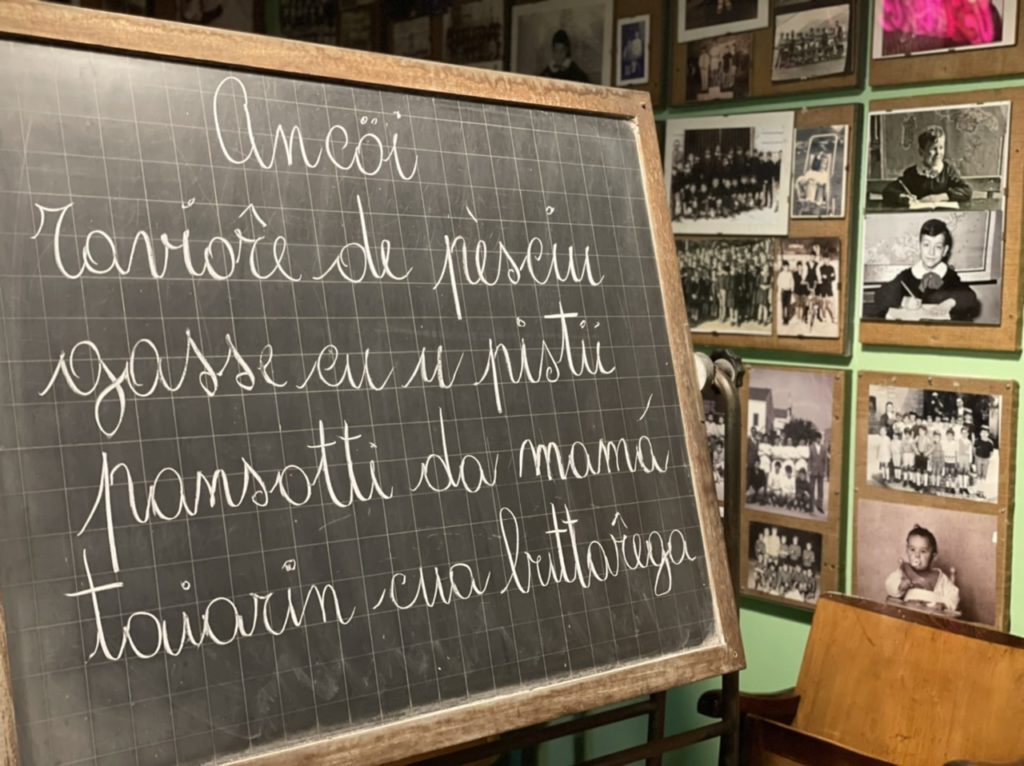 Ancöi
raviörê de pèsciu
gasse cu u pistü
pansotti da mamá
taiarin cua buttarêga